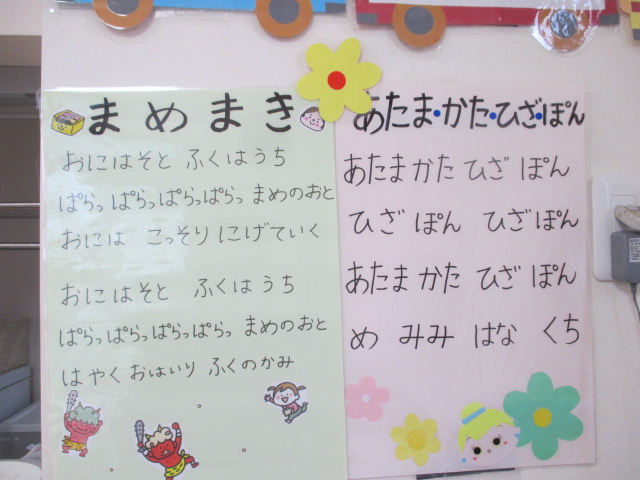 まめまき
おにはそと ふくはうち
ぱらっ ぱらっぱらっぱらっ まめのおと
おには こっそり にげていく
おにはそと ふくはうち
ぱらっぱらっぱらっぱらっ まめのおと
はやく おはいり ふくのかみ
あたま・かた・ひざ・ぽん
あたま かた ひざ ぽん
ひざ ぽん ひざ ぽん
あたま かた ひざ ぽん
め みみ はな くち